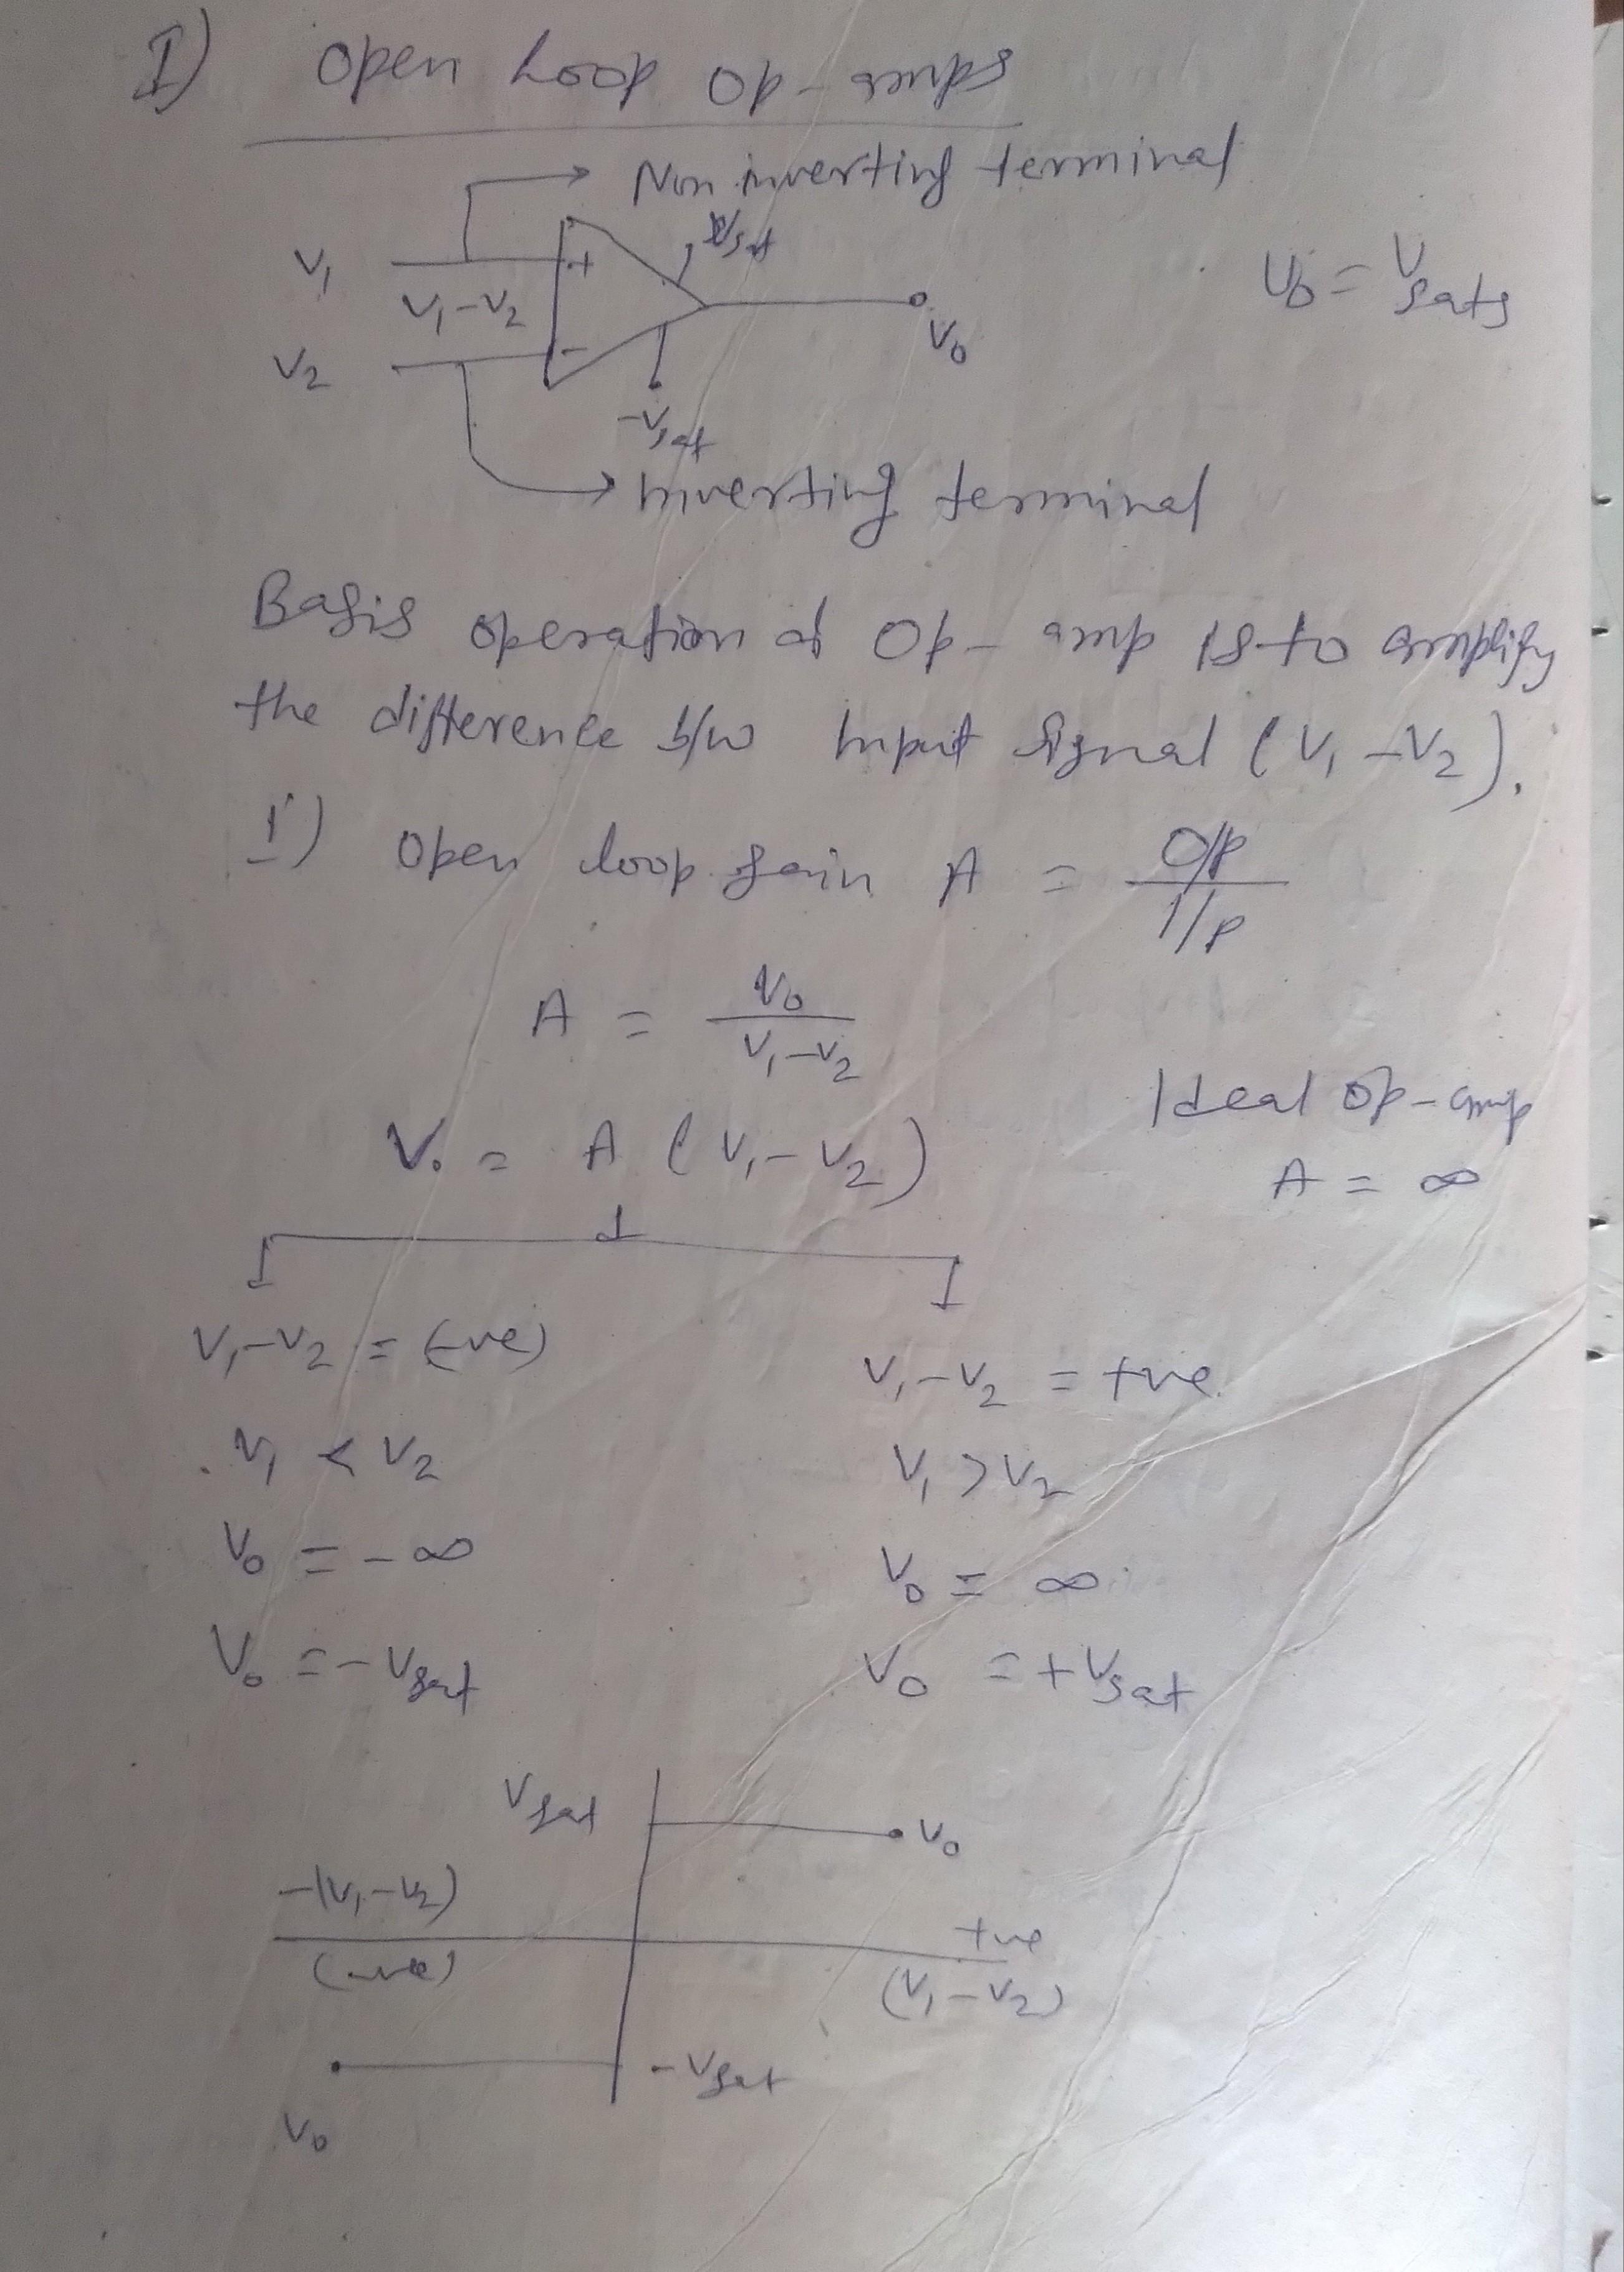 I) Open Loop Op-amps
Non inverting terminal
V1 + Vsat
V1-V2 V0 = Vsat
V2 - V0
-Vsat
Inverting terminal
Basis operation of Op-amp is to amplify
the difference b/w Input Signal (V1-V2).
1) Open loop gain A = O/P
I/P
A = V0
V1-V2
Ideal Op-amp
V0 = A (V1-V2)
A = ∞
V1-V2 = (-ve) V1-V2 = +ve
V1 < V2 V1 > V2
V0 = -∞ V0 = ∞
V0 = -Vsat V0 = +Vsat
Vsat V0
-(V1-V2)
(-ve) +ve
(V1-V2)
-Vsat
V0